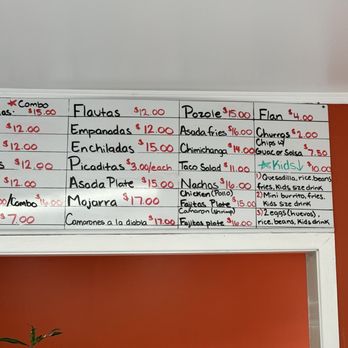 ★Combo
as. $15.00
$12.00
$12.00
$12.00
$12.00
/Combo
$7.00
Flautas $12.00
Empanadas $12.00
Enchiladas $15.00
Picaditas $3.00/each
Asada Plate $15.00
Mojarra $17.00
Camarones a la diabla $17.00
Pozole $15.00
Asada fries $16.00
Chimichanga $14.00
Taco Salad $11.00
Nachos $16.00
Chicken (Pollo)
Fajitas Plate $15.00
Camaron (shrimp)
Fajitas plate $16.00
Flan $4.00
Churros $2.00
Chips w/
Guac or Salsa $7.50
★Kids↓ $10.00
1) Quesadilla, rice, beans
fries, Kids size drink
2) Mini burrito, fries,
Kids size drink
3) 2 eggs (huevos),
rice, beans, Kids drink